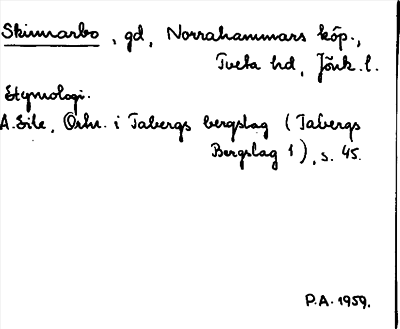 Skinnarbo, gd, Norrahammars köp.,
Tveta hd, Jönk. l.
Etymologi.
A. Eile, Ortn. i Tabergs bergslag (Tabergs
Bergslag 1), s. 45.
P.A. 1959.